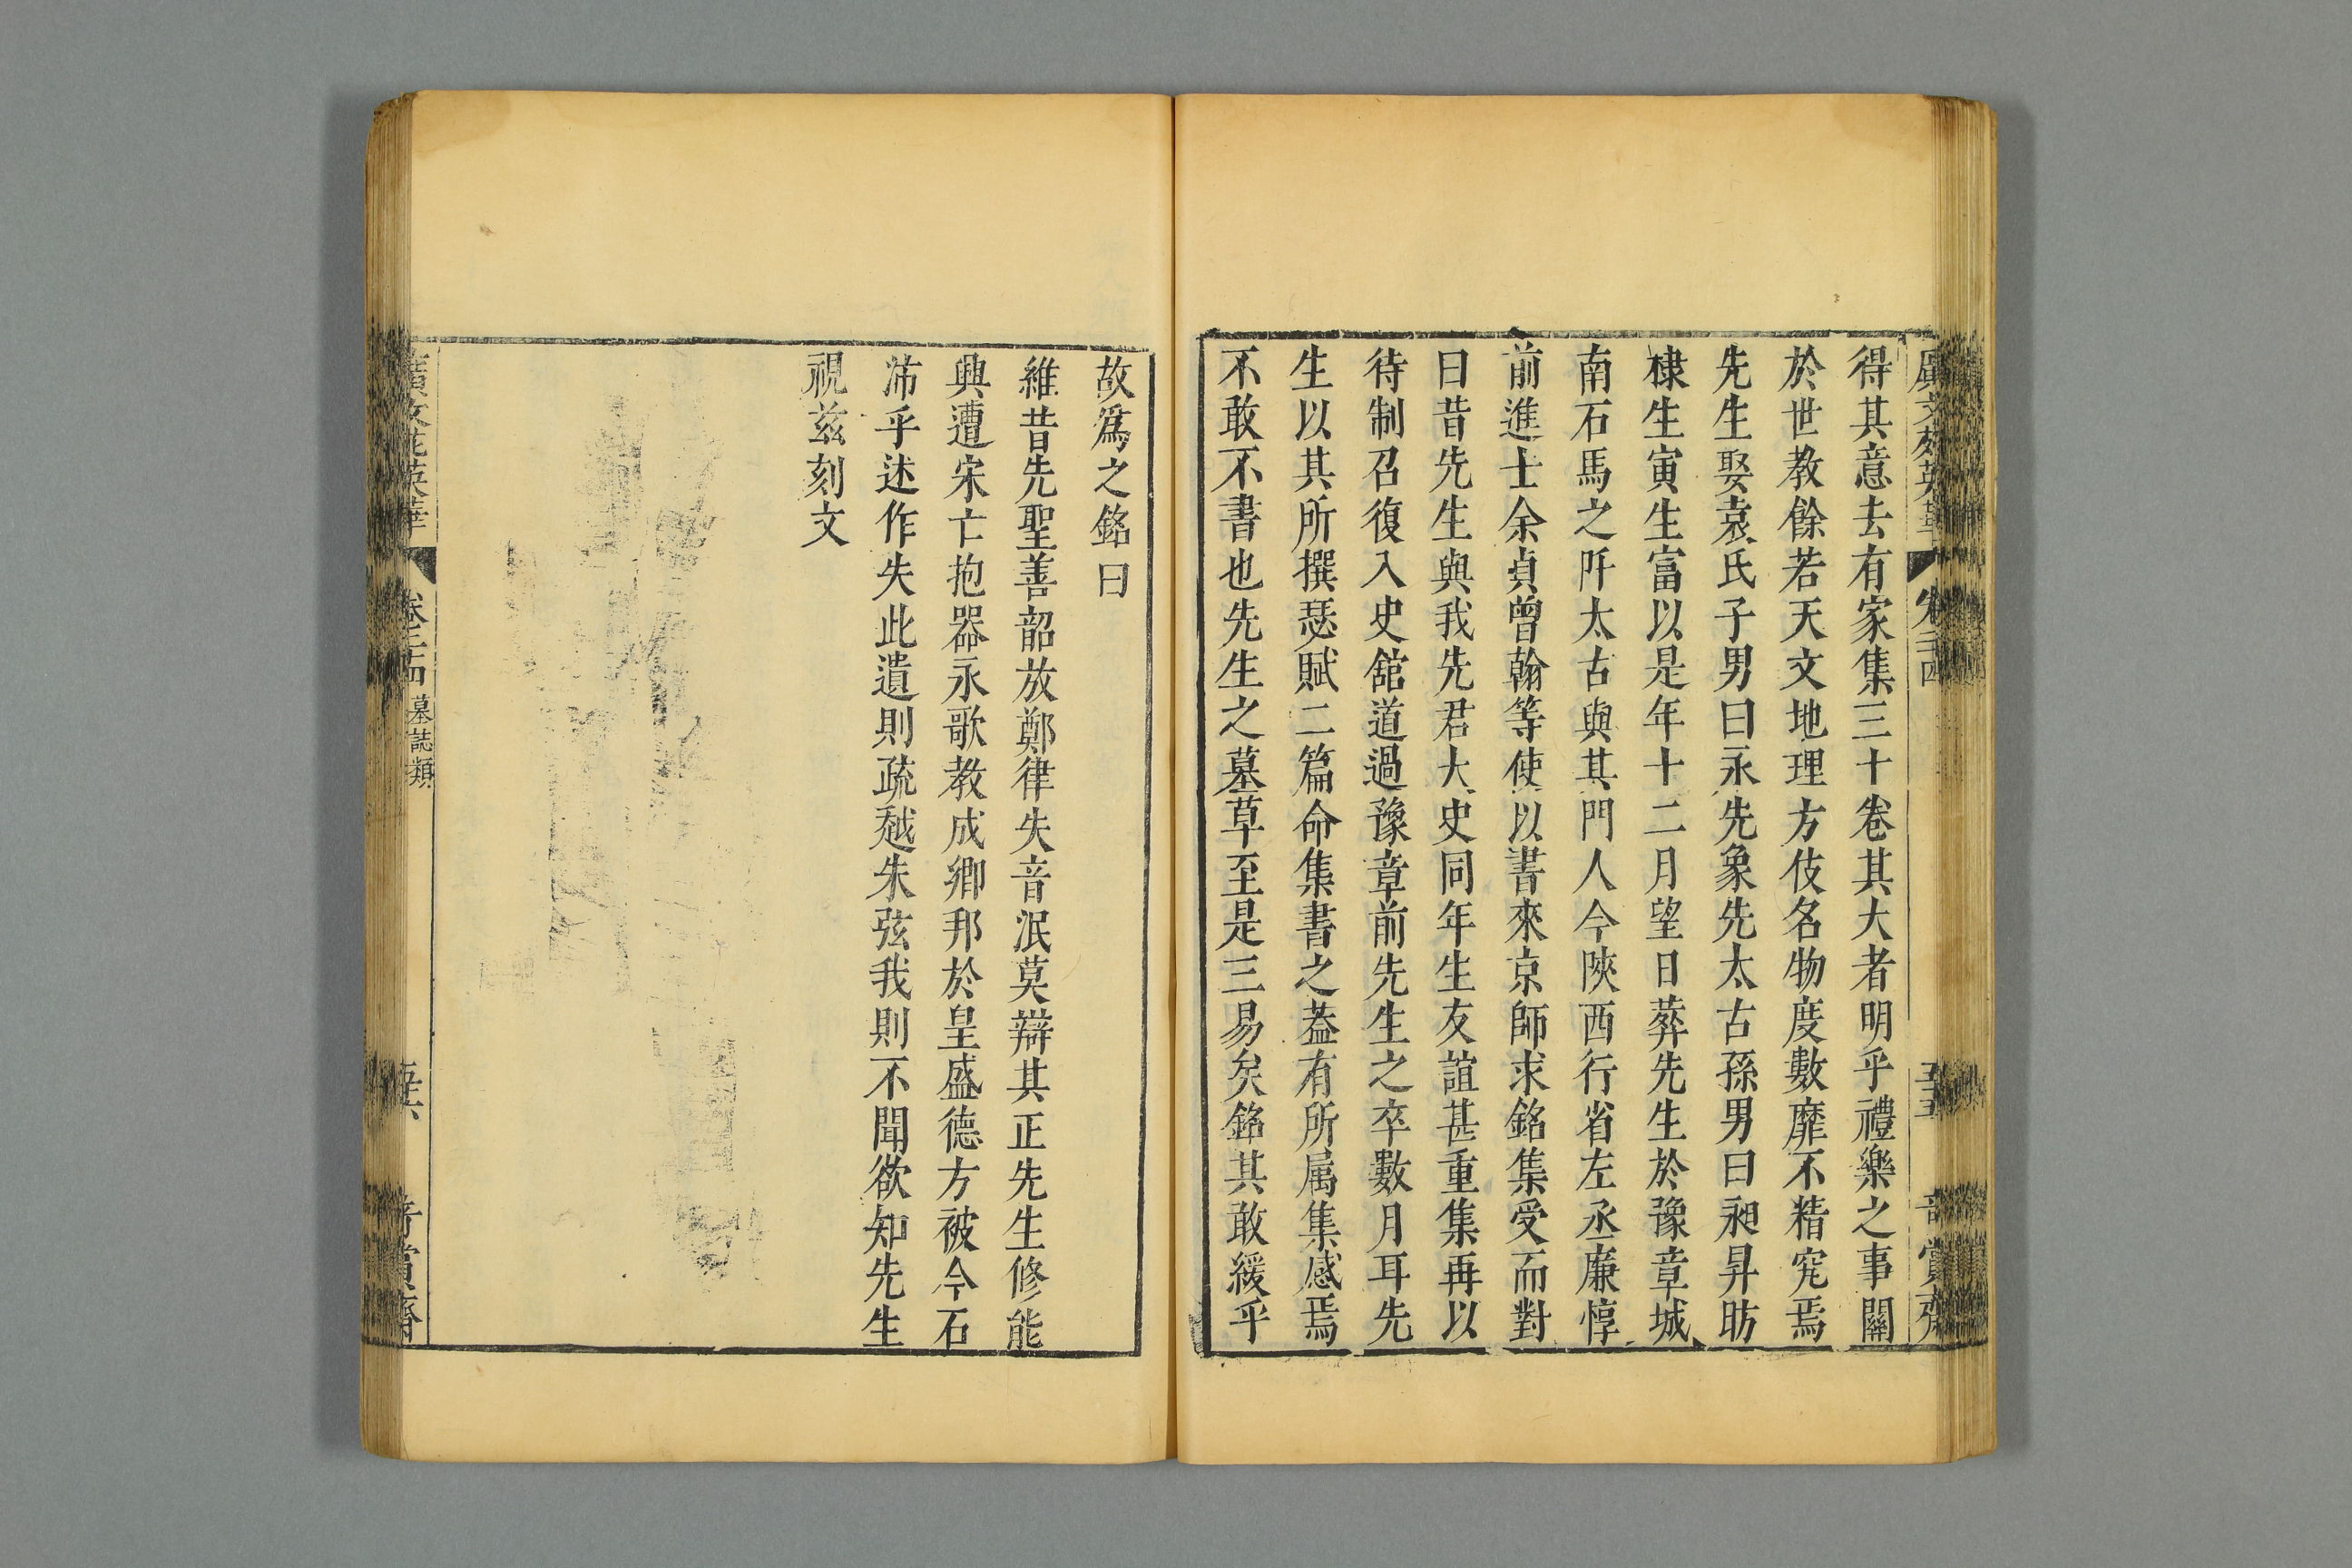 得其意去有家集三十卷其大者明乎禮樂之事關
於世教餘若天文地理方伎名物度數靡不精究焉
先生娶袁氏子男曰永先象先太古孫男曰昶昇昉
棣生寅生富以是年十二月望日葬先生於豫章城
南石馬之阡太古與其門人今陝西行省左丞廉惇
前進士余貞曾翰等使以書來京師求銘集受而對
曰昔先生與我先君大史同年生友誼甚重集再以
待制召復入史舘道過豫章前先生之卒數月耳先
生以其所撰瑟賦二篇命集書之葢有所属集感焉
不敢不書也先生之墓草至是三易矣銘其敢緩乎
故爲之銘曰
維昔先聖善韶放鄭律失音泯莫辯其正先生修能
興遭宋亡抱器永歌教成鄉邦於皇盛德方被今石
沛乎述作失此遺則疏越朱弦我則不聞欲知先生
視兹刻文
廣文苑英華
墓誌類